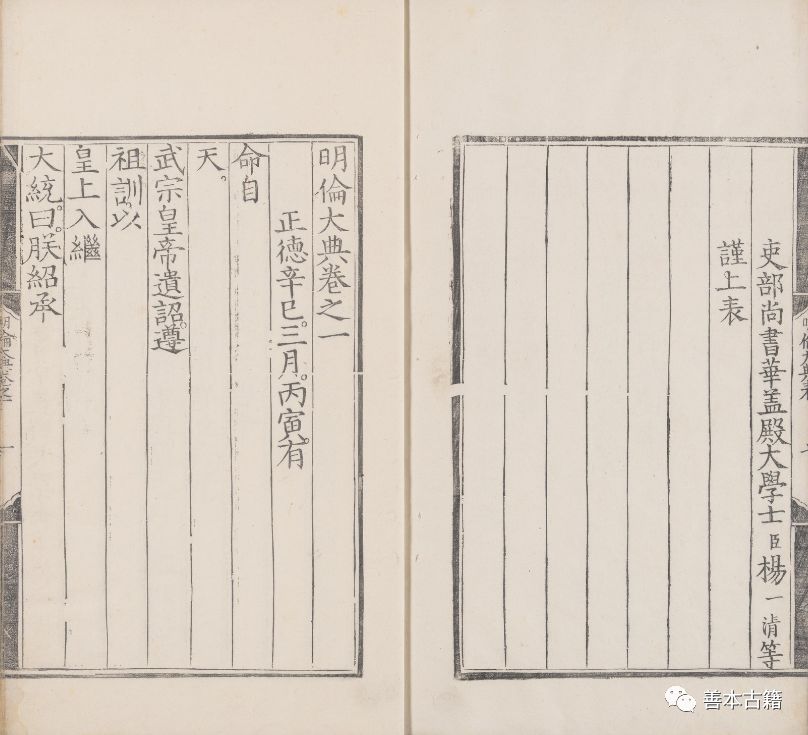 吏部尚書華盖殿大學士臣楊一清等
謹上表
明倫大典卷之一
正德辛巳。三月。丙寅。有
命自
天。
武宗皇帝遺詔。遵
祖訓。以
皇上入繼
大統。曰。朕紹承
善本古籍